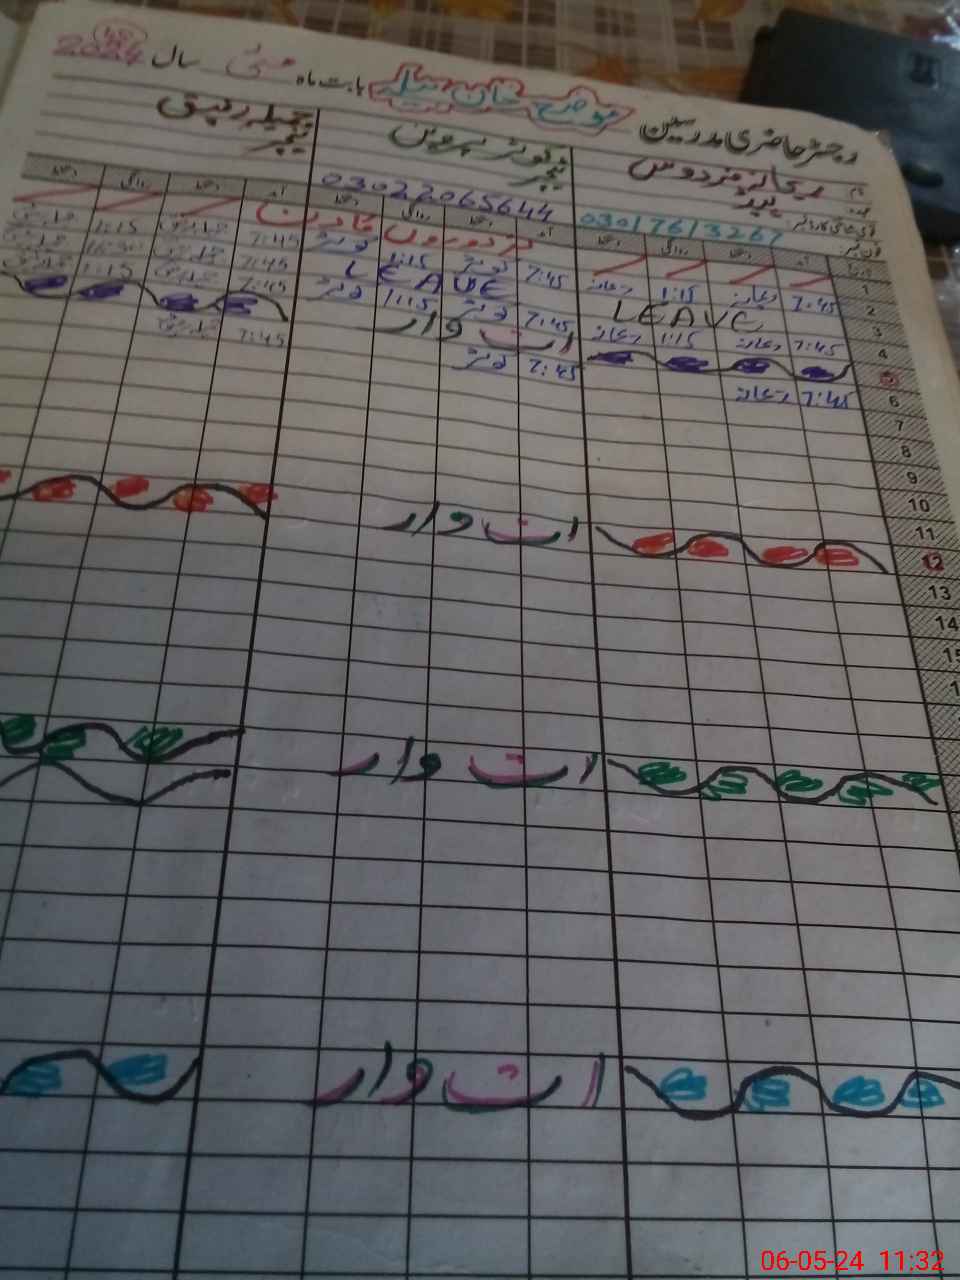 رجسٹر حاضری مدرسین موضع خان بیلہ بابت ماہ مئی سال 2024
نام ریحانہ فردوس کوثر پروین جمیلہ رفیق
عہدہ ٹیچر ٹیچر ٹیچر
03017613267 03022065644
آمد دستخط روانگی دستخط آمد دستخط روانگی دستخط آمد دستخط روانگی دستخط
1 مزدوروں کا دن
2 7:45 ریحانہ 1:15 ریحانہ 7:45 کوثر 1:15 کوثر 7:45 1:15
3 LEAVE LEAVE 7:45
4 7:45 ریحانہ 1:15 ریحانہ 7:45 کوثر 1:15 کوثر 7:45 1:15
5 ات وار
6 7:45 ریحانہ 7:45 کوثر 7:45
7
8
9
10
11
12 ات وار
13
14
15
ات وار
ات وار
06-05-24 11:32